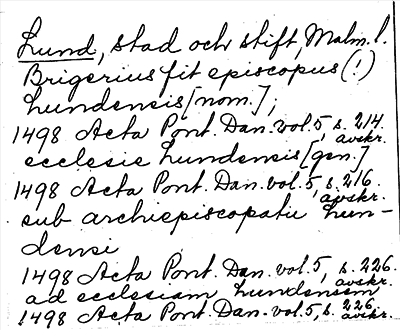 Lund, stad och stift, Malm. l.
Brigerius fit episcopus (!)
lundensis [nom.];
1498 Acta Pont. Dan. vol. 5, s. 214.
avskr.
ecclesie lundensis [gen.]
1498 Acta Pont. Dan. vol. 5, s. 216.
avskr.
sub archiepiscopatu lun-
densi
1498 Acta Pont. Dan. vol. 5, s. 226.
avskr.
ad ecclesiam lundensem
1498 Acta Pont. Dan. vol. 5, s. 226.
avskr.